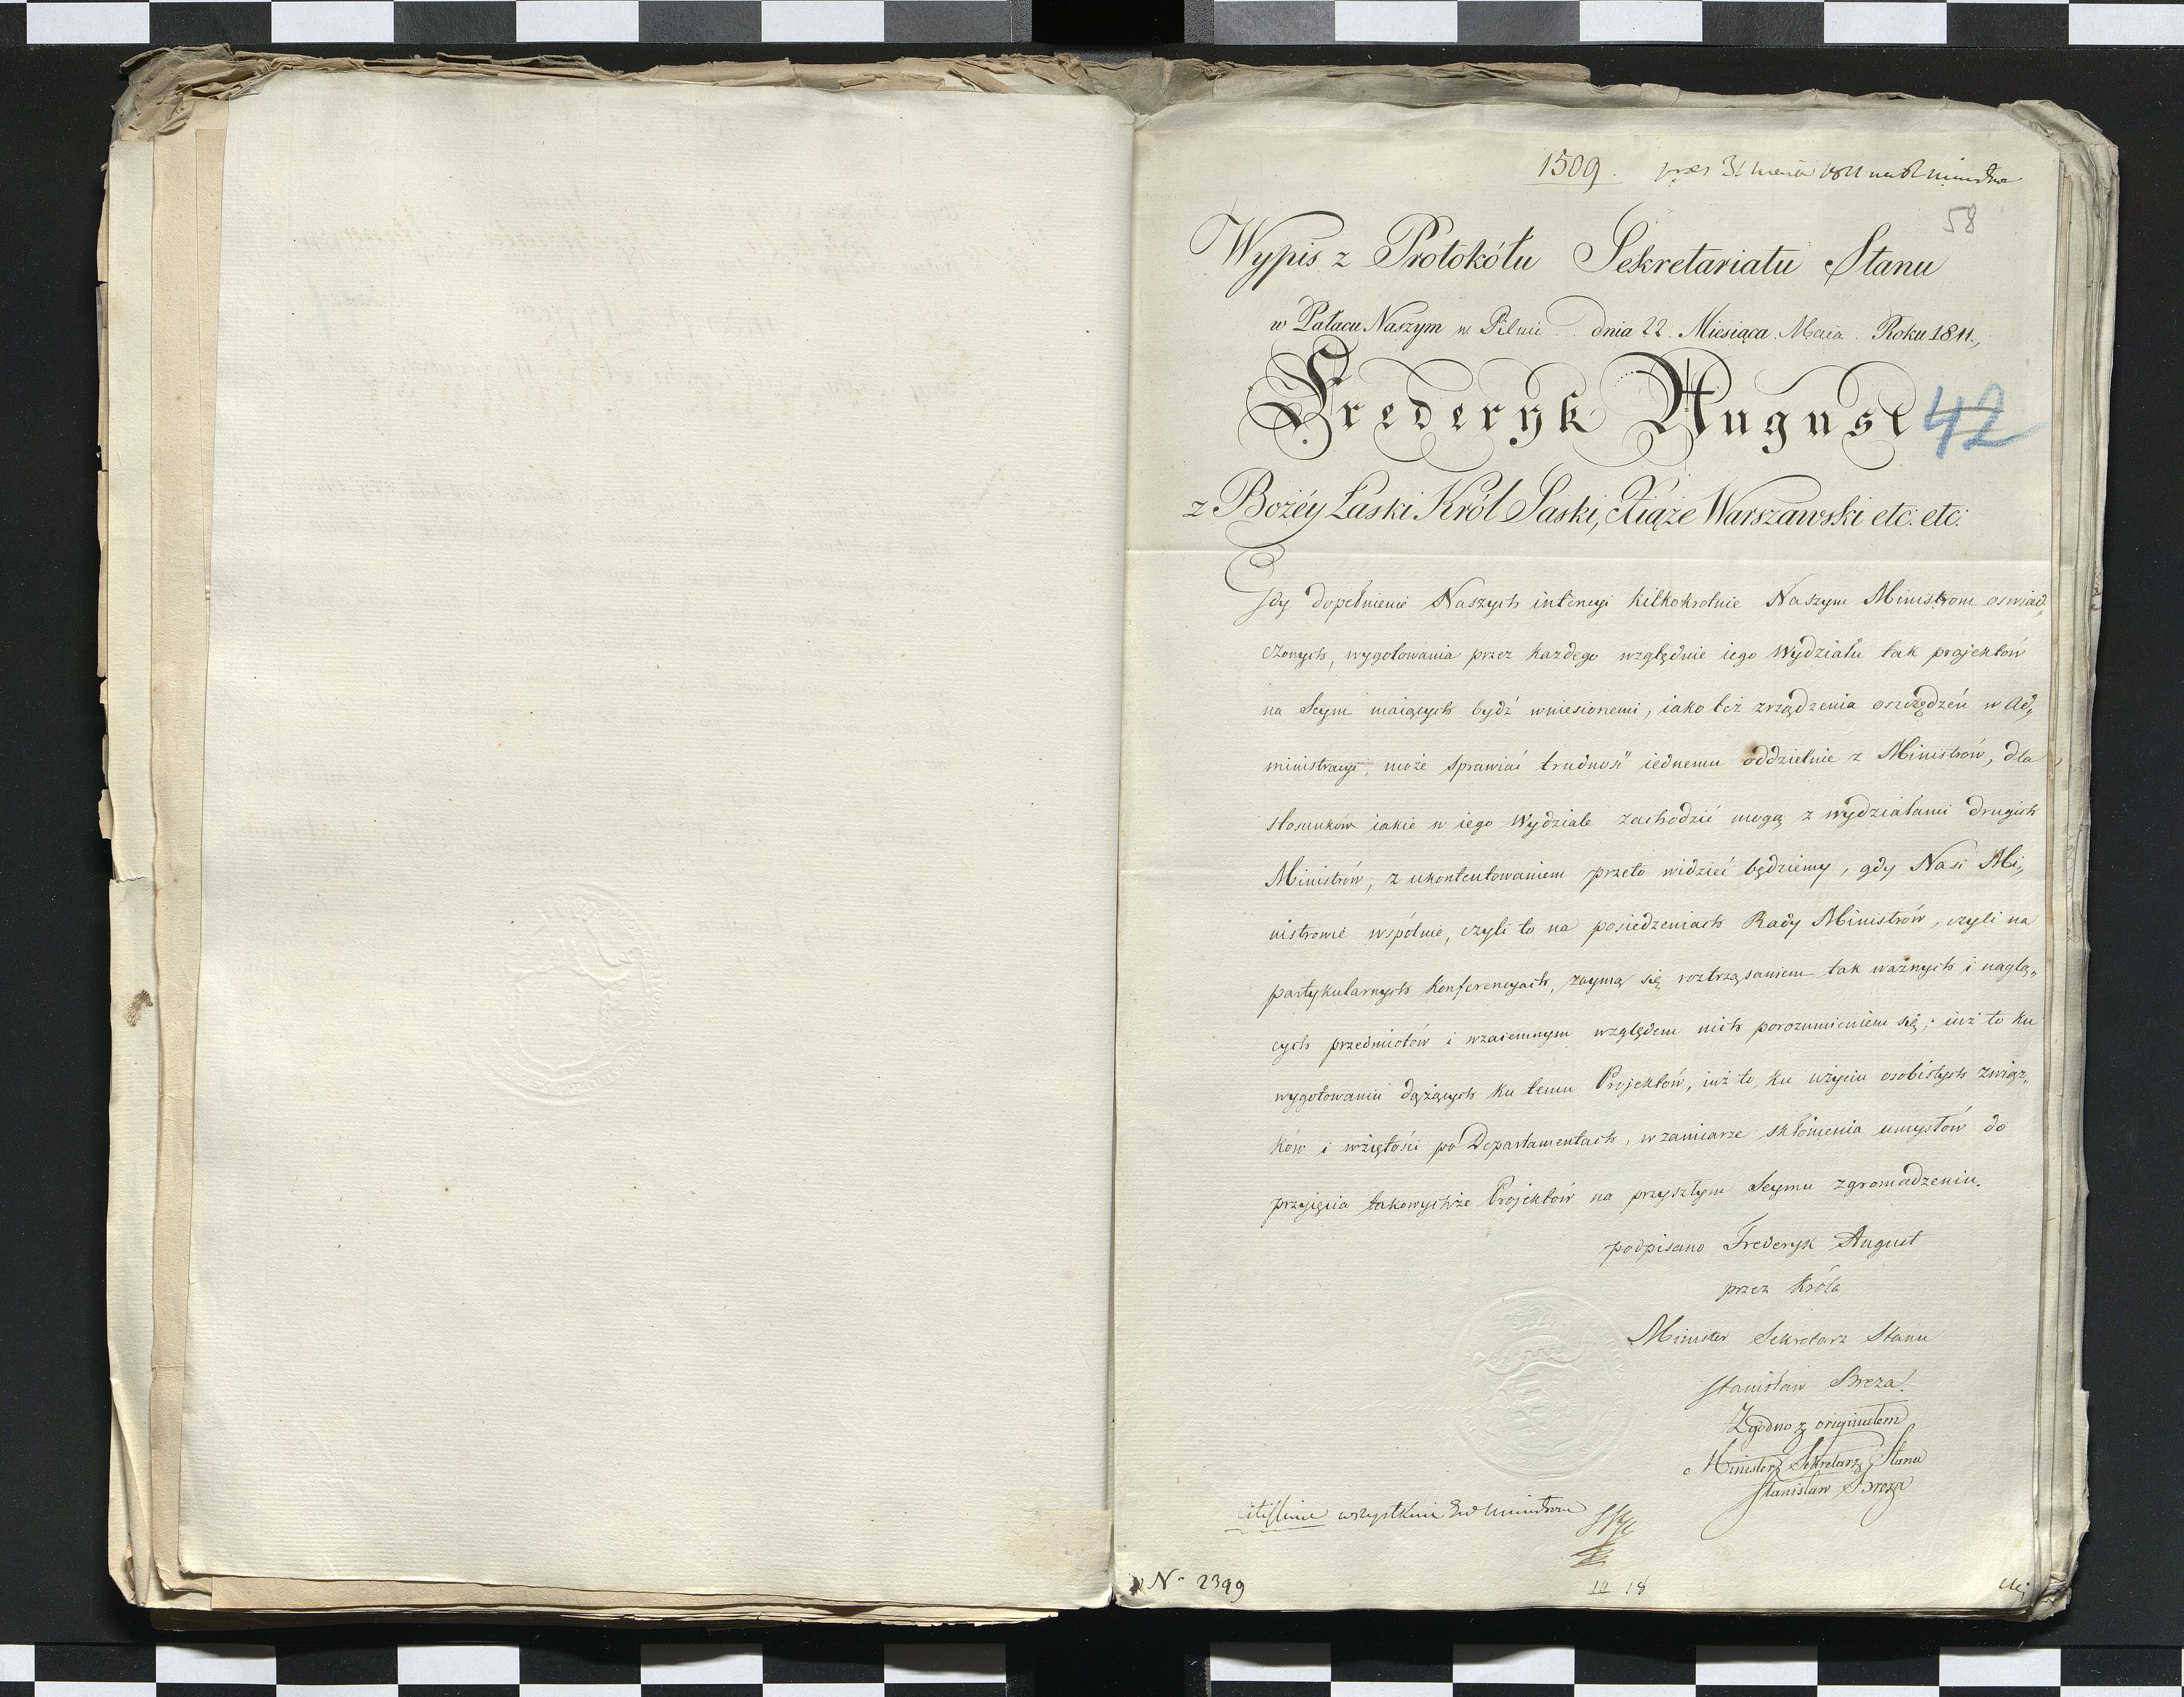 1509.
58
Wypis z Protokółu Sekretariatu Stanu
w Pałacu Naszym w Pilnic dnia 22. Miesiąca Maia. Roku 1811.,
Frederyk August
42
z Bożéy Łaski Król Saski, Xiąże Warszawski etc. etc.
Gdy dopełnienie Naszych intencyi kilkokrotnie Naszym Ministrom oswiad„
czonych, wygotowania przez każdego względnie iego Wydziału tak projektów
na Seym maiących bydź wniesionemi, iako też zrządzenia oszczędzeń w Ad„
ministracyi, może sprawiać trudność iednemu oddzielnie z Ministrów, dla
stosunków iakie w iego Wydziale zachodzić mogą z wydziałami drugich
Ministrów, z ukontentowaniem przeto widzieć będziemy, gdy Nasi Mi„
nistrowie wspólnie, czyli to na posiedzeniach Rady Ministrów, czyli na
partykularnych konferencyach, zaymą się roztrząsaniem tak ważnych i naglą„
cych przedmiotów i wzaiemnym względem nich porozumieniem się; iuż to ku
wygotowaniu dążących ku temu Projektów, iuż to, ku użyciu osobistych związ„
ków i wziętości po Departamentach, w zamiarze skłonienia umysłów do
przyjęcia takowychże Projektów na przyszłym Seymu zgromadzeniu.
podpisano Frederyk August
przez Króla
Minister Sekretarz Stanu
Stanisław Breza.
Zgodno z originałem
Minister Sekretarz Stanu
Stanisław Breza
wszystkim
N° 2399
18